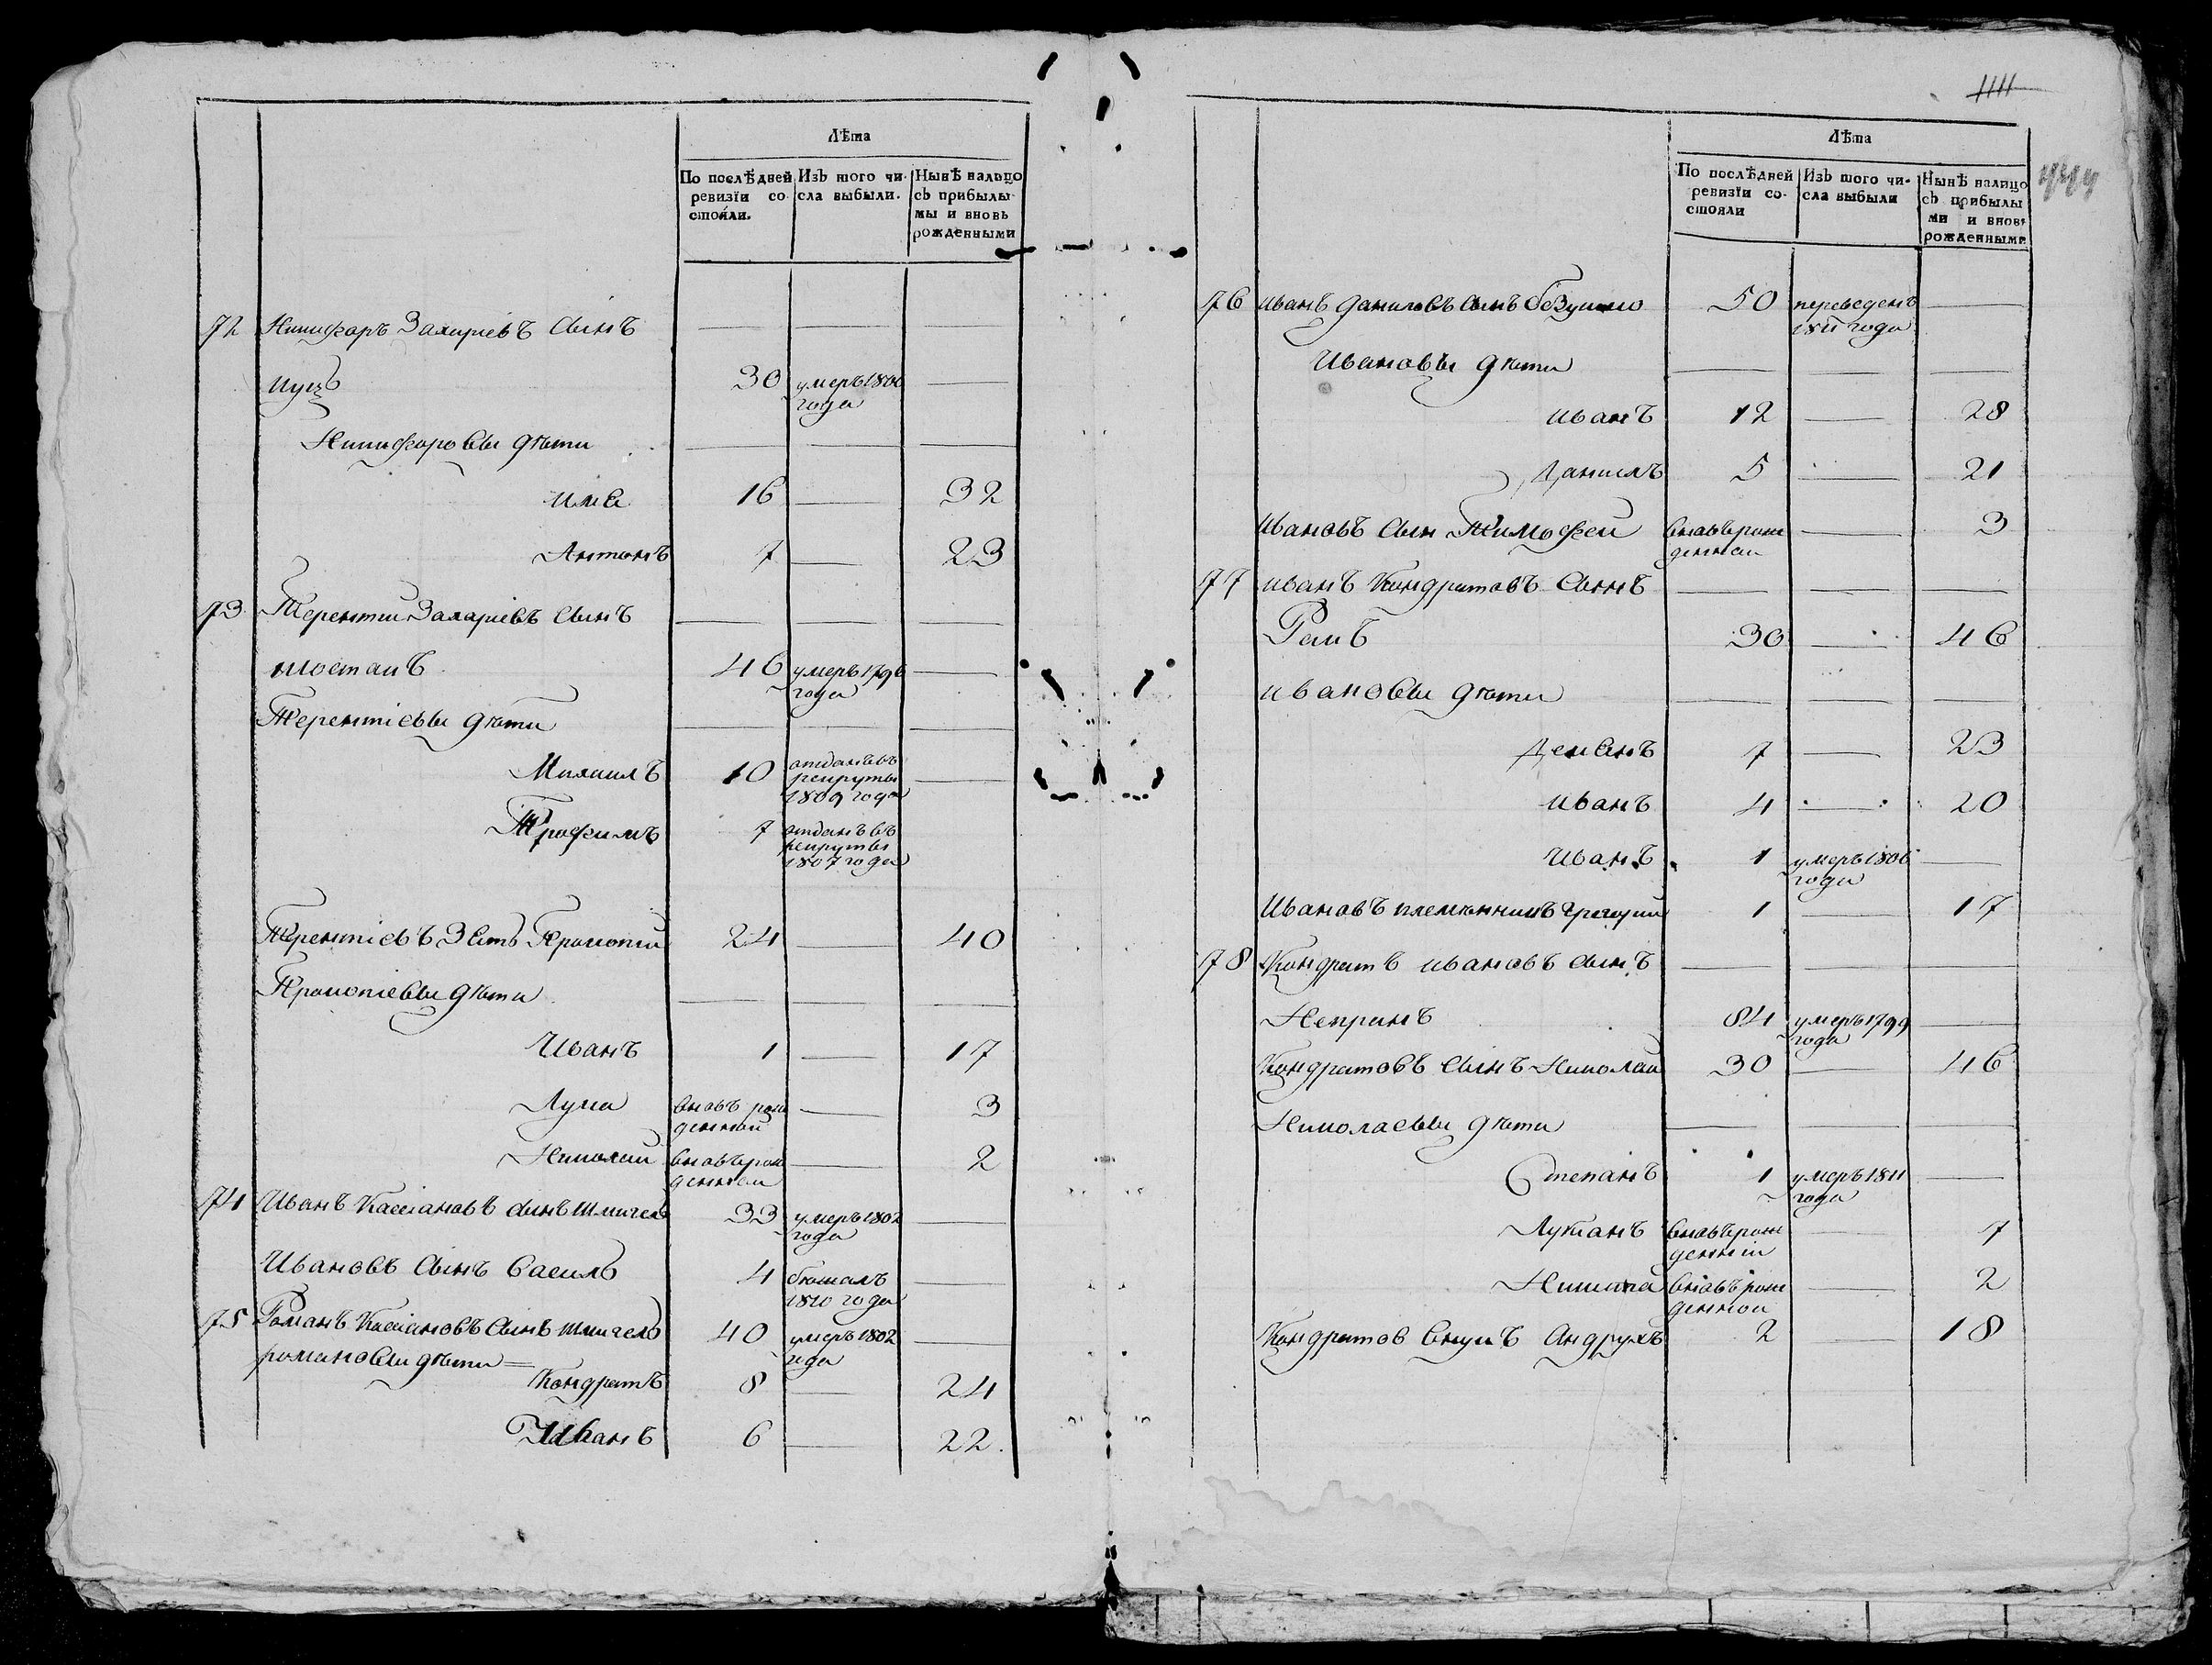 Лѣта
По послѣдней Изъ того чи- Нынѣ налицо
ревизїи со- сла выбыли. съ прибылы-
стояли. мы и вновь
рожденными
72 Никифоръ Захаріевъ сынъ — —
куцъ 30 умеръ 1806 —
года
Никифоровы дѣти — — —
16 — 32
Антонъ 7 — 23
73 Терентии Захаріевъ сынъ — — —
шостакъ 46 умеръ 1796 —
года
Терентіевы дѣти — — —
Михаилъ 10 отданъ въ —
рекруты
1809 года
Трофимъ 7 отданъ въ
рекруты
1807 года
Терентіевъ Зять Прокопій 24 — 40
Прокопіевы дѣти — — —
Иванъ 1 — 17
Лука вновь рож — 3
денный
Николай вновь рож — 2
денной
74 Иванъ Касіановъ сынъ Шмигель 33 умеръ 1802 —
года
Ивановъ сынъ Василь 4 бѣжалъ —
1810 года
75 Романъ Касіановъ сынъ шмигель 40 умеръ 1802 —
года
романовы дѣти =
Кондратъ 8 — 24
Иванъ 6 — 22.
1111
Лѣта
По послѣдней Изъ того чи- Нынѣ налицо
ревизїи со- сла выбыли съ прибылы
стояли ми и вновь
рожденными
76 иванъ даниловъ сынъ 50 переведенъ —
1811 года
Ивановы дѣти — — —
иванъ 12 — 28
Данилъ 5 — 21
Ивановъ сын Тимофей вновь рож — 3
денной
77 иванъ Кондратовъ сынъ — — —
30 — 46
ивановы дѣти — — —
Демянъ 7 — 23
иванъ 4 — 20
Иванъ 1 умеръ 1806 —
года
Ивановъ племянникъ Григорий 1 — 17
78 Кондратъ ивановъ сынъ — — —
84 умеръ 1799 —
года
Кондратовъ сынъ Николай 30 — 46
Николаевы дѣти — — —
Степанъ 1 умеръ 1811 —
года
Лукіанъ вновь рож — 7
денній
Никита вновь рож — 2
денной
Кондратов внукъ Андрухъ 2 — 18